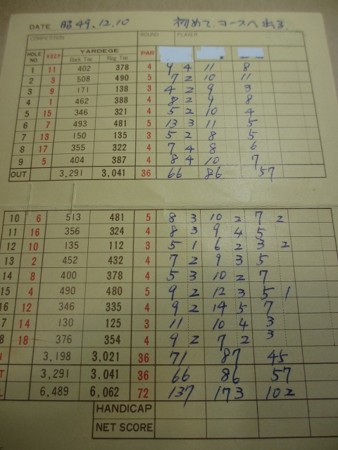 DATE 昭49.12.10 初めて コースへ
HOLE NO. YARDEGE PAR
Back Tee Reg. Tee
1 11 402 378 4 9 4 11 8
2 3 508 490 5 7 2 10 11
3 9 171 138 3 4 2 9 3
4 1 462 388 4 8 2 9 8
5 15 346 321 4 5 2 10 4
6 7 493 481 5 13 3 11 5
7 13 150 135 3 5 2 8 5
8 17 355 322 4 7 4 8 6
9 5 404 387 4 8 4 10 7
OUT 3,291 3,041 36 66 86 57
10 6 513 481 5 8 3 10 2 7 2
11 16 356 324 4 8 3 9 4 5
12 10 135 112 3 5 1 6 2 3 2
13 2 452 432 4 7 2 9 3 5
14 8 400 378 4 5 3 10 2 7
15 4 490 480 5 9 2 12 3 5 1
16 12 346 335 4 9 2 14 5 7
7 14 130 125 3 11 10 4 3
8 18 376 354 4 9 2 7 2 3
3,198 3,021 36 71 87 45
3,291 3,041 36 66 86 57
6,489 6,062 72 137 173 102
HANDICAP
NET SCORE